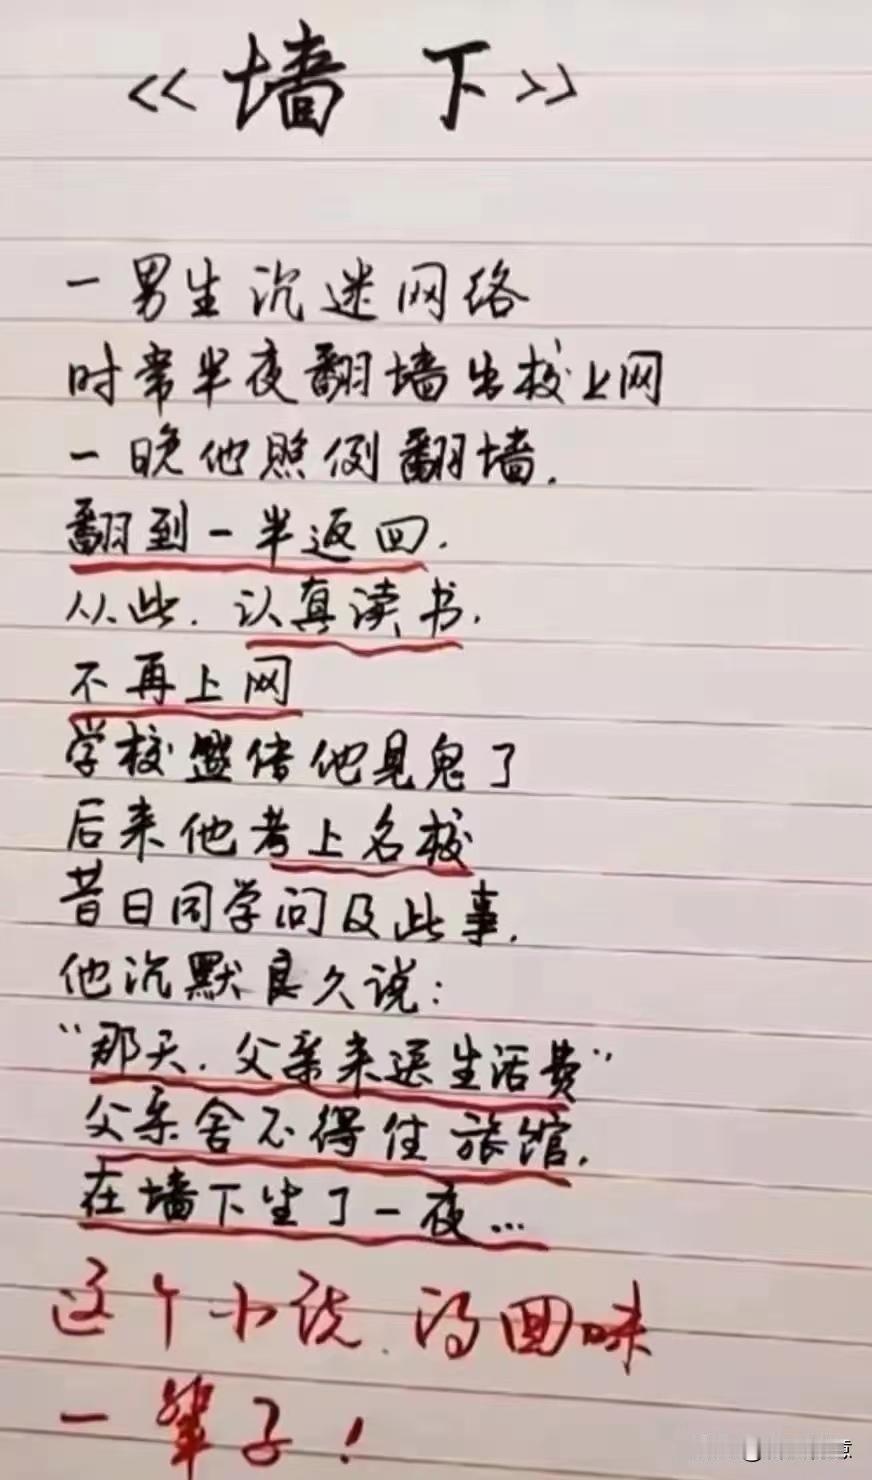 《墙下》
一男生沉迷网络
时常半夜翻墙出校上网
一晚他照例翻墙.
翻到一半返回.
从此.认真读书.
不再上网
学校盛传他见鬼了
后来他考上名校
昔日同学问及此事.
他沉默良久说:
“那天.父亲来送生活费”
父亲舍不得住旅馆.
在墙下坐了一夜...
这个小说.得回味
一辈子!